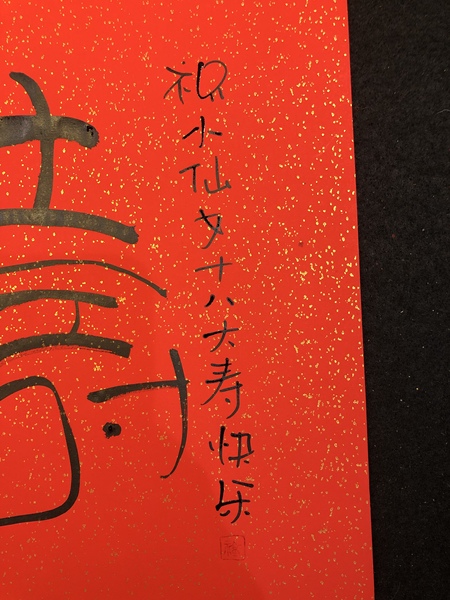 祝小仙女十八大寿快乐
壽